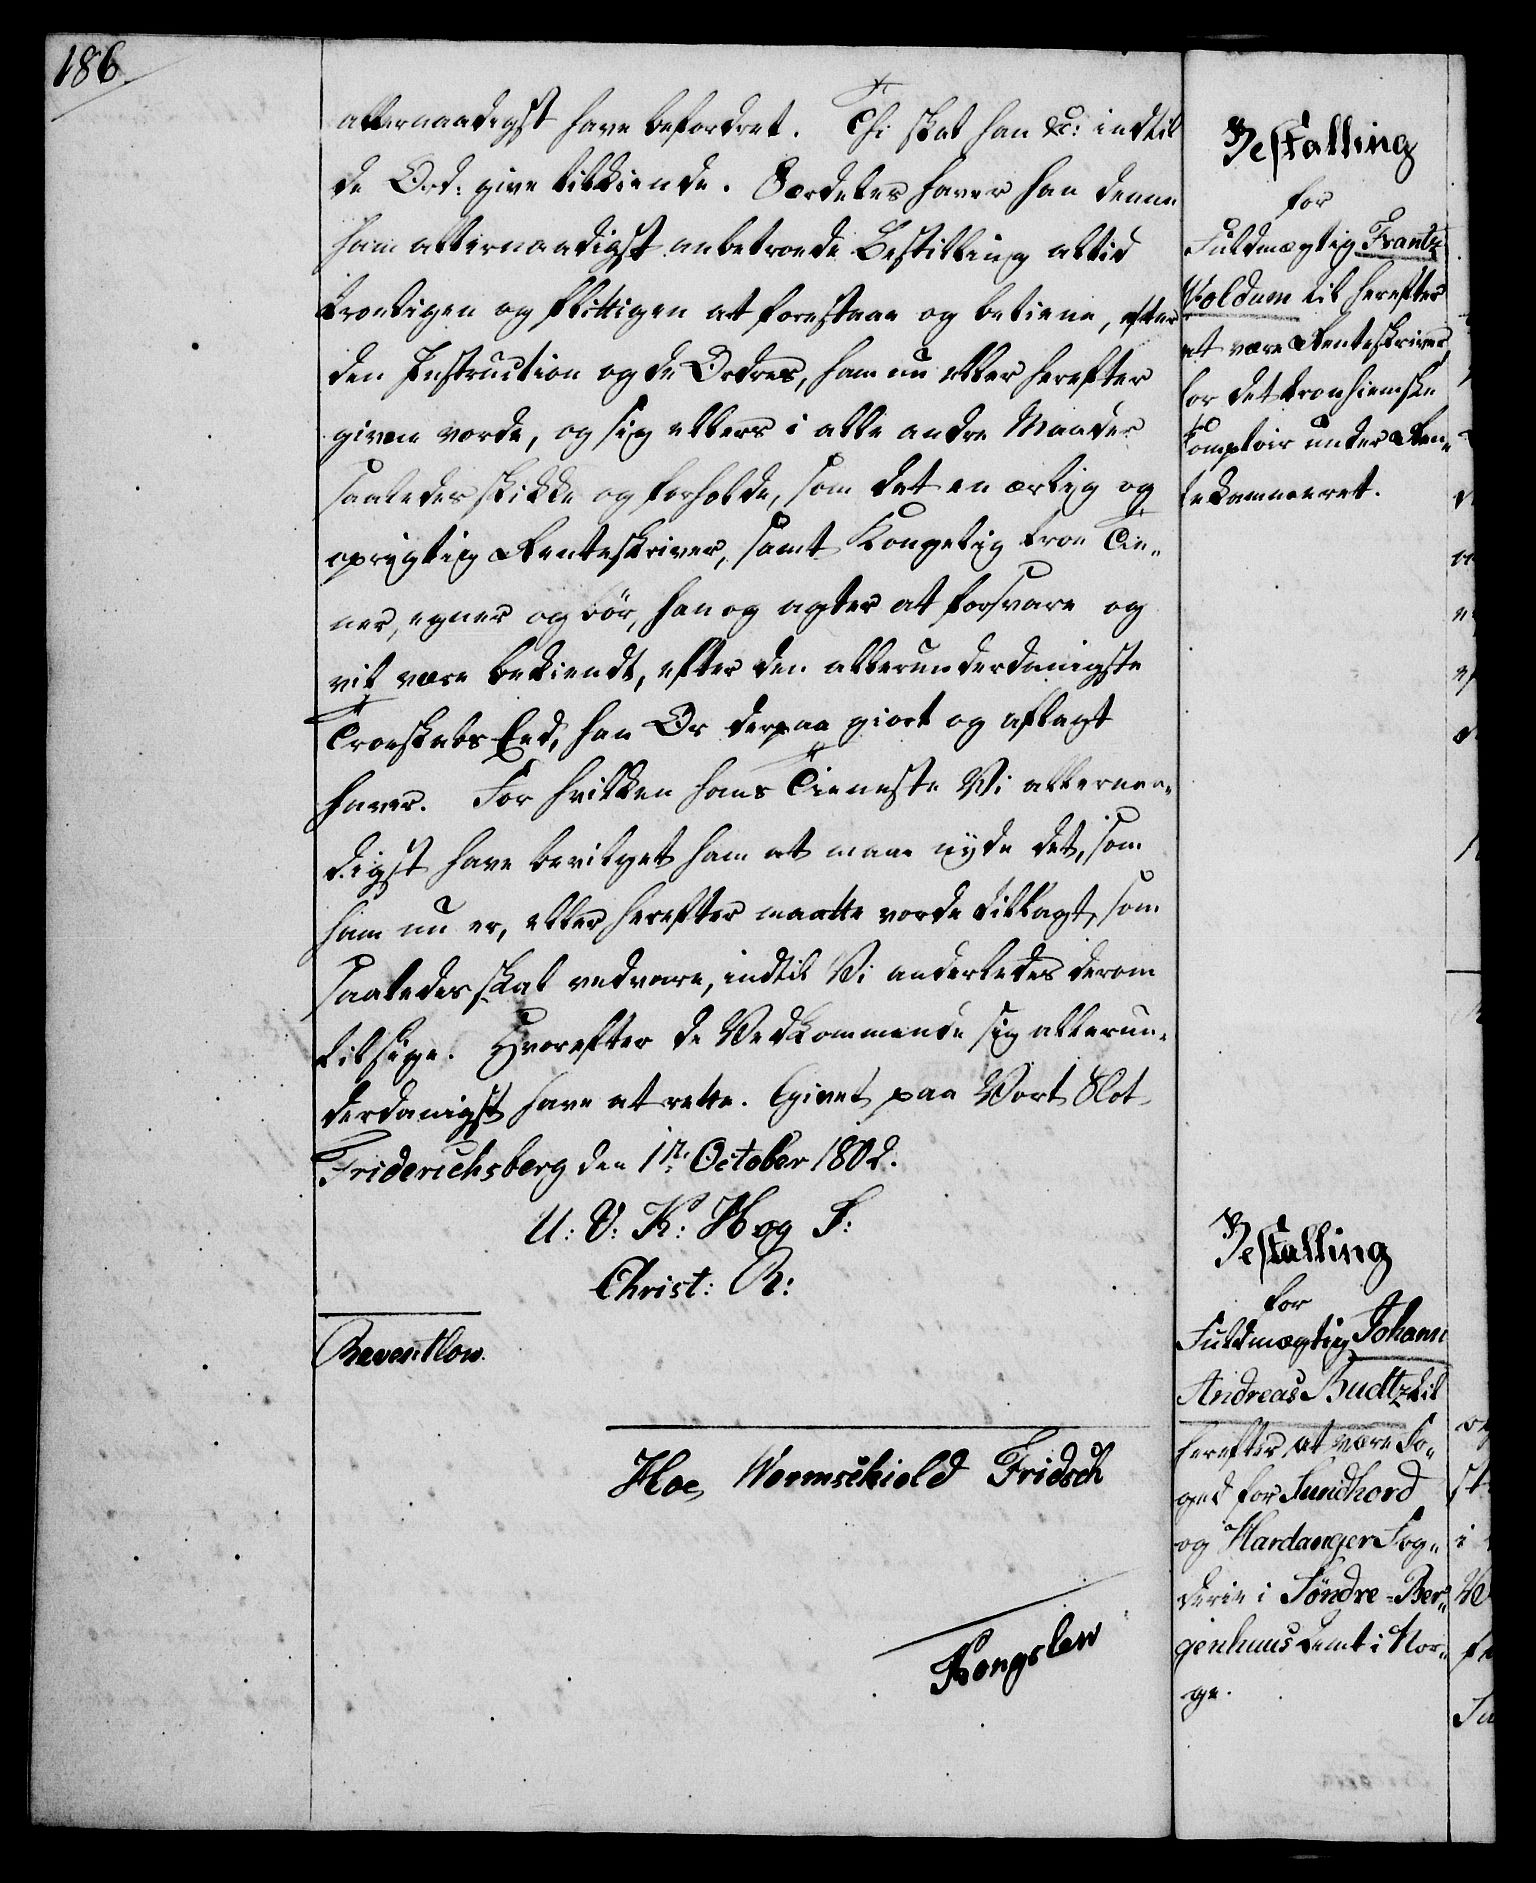 186.
allernaadigst have befordret. Thi skal han &c: indtil
de Ord: give tilkiende. Særdeles haver han denne
ham allernaadigst anbetroede Bestilling altid
troeligen og flittigen at forestaae og betiene, efter
den Instruction og de Ordres, ham nu eller herefter
given vorde, og sig ellers i alle andre Maader
saaledes skikke og forholde, som det en ærlig og
oprigtig Renteskriver, samt Kongelig troe Tie„
ner, egner og bör, han og agter at forsvare og
vil være bekiendt, efter den allerunderdanigste
Troeskabs Eed, han Os derpaa giort og aflagt
haver. For hvilken hans Tieneste Vi allernaa„
digst have bevilget ham at maae nyde det, som
ham nu er, eller herefter maatte vorde tillagt, som
saaledes skal vedvare, indtil Vi anderledes derom
tilsige. Hvorefter de Vedkommende sig allerun„
derdanigst have at rette. Givet paa Vort Slot
Friderichsberg den 1te October 1802.
U: V: K: H og S:
Christ: R:
Reventlow.
Hoe Wormskiold Fridsch
Kongslew
Bestalling
for
Fuldmægtig Frantz
Woldum til herefter
at være Renteskriver
for det tronhiemske
Comptoir under Ren„
tekammeret.
Bestalling
for
Fuldmægtig Johann
Andreas Budtz til
herefter at være Fo„
ged for Sundhord
og Hardanger Fog„
derie i Söndre-Ber„
genhuus Amt i Nor„
ge.